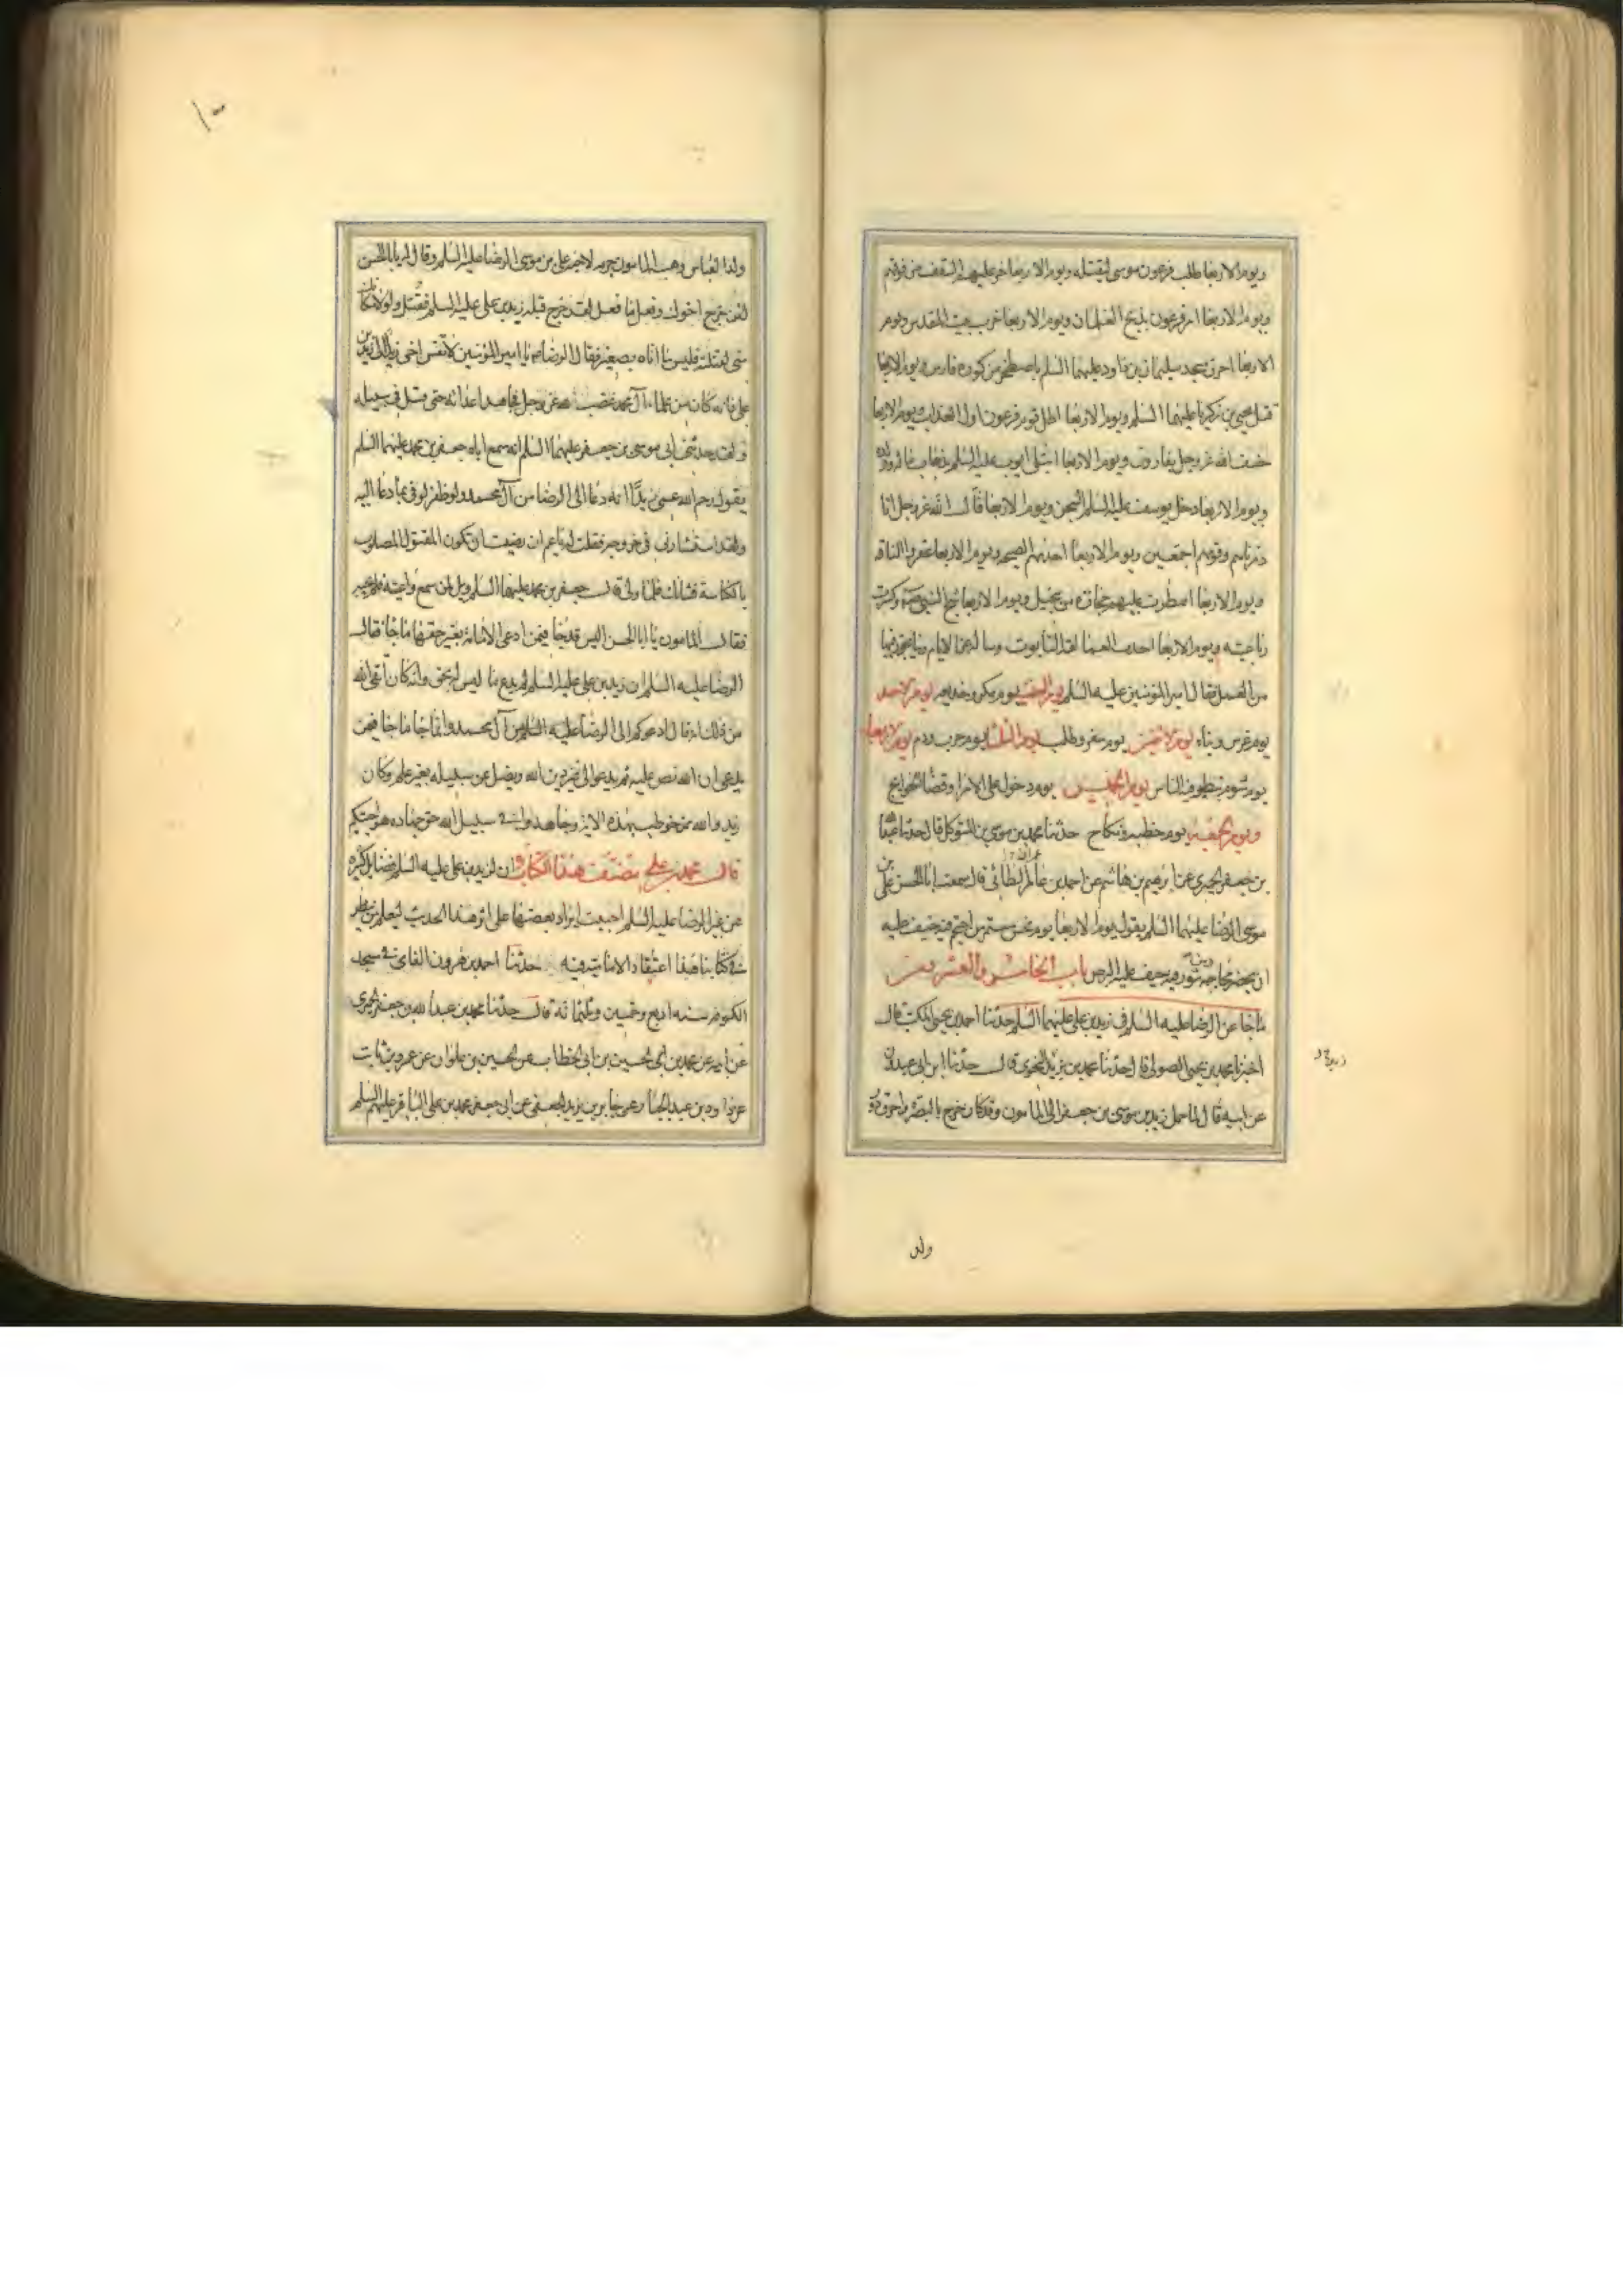 ويوم الاربعا طلب فرعون موسى ليقتله ويوم الاربعا خر عليهم السقف من فوقهم
ويوم الاربعا امر فرعون بذبح الغلمان ويوم الاربعا خرب بيت المقدس ويوم
الاربعا احرق مسجد سليمان بن داود عليهما السلم باصطخر من كورة فارس ويوم الاربعا
قتل يحيى بن زكريا عليهما السلم ويوم الاربعا اظل قوم فرعون اول العذاب ويوم الاربعا
خسف الله عز وجل بقارون ويوم الاربعا ابتلى ايوب عليه السلم بذهاب ماله وولده
ويوم الاربعا دخل يوسف عليه السلم السجن ويوم الاربعا قال الله عز وجل انا
دمرناهم وقومهم اجمعين ويوم الاربعا اخذتهم الصيحه ويوم الاربعا عقروا الناقه
ويوم الاربعا امطرت عليهم حجارة من سجيل ويوم الاربعا شج النبي وكسرت
رباعيته ويوم الاربعا اخذت العمالقه التابوت وساله عن الايام وما يجوز فيها
من العمل فقال امير المؤمنين عليه السلم يوم السبت يوم مكر وخديعه يوم الاحد
يوم غرس وبناء يوم الاثنين يوم سفر وطلب يوم الثلثا يوم حرب ودم يوم الاربعا
يوم شوم يتطير فيه الناس يوم الخميس يوم دخول على الامرا وقضا الحوايج
ويوم الجمعة يوم خطبة ونكاح حدثنا محمد بن موسى بن المتوكل قال حدثنا عبدالله
بن جعفر الحميري عن ابرهيم بن هاشم عن احمد بن عامر الطائي قال سمعت ابا الحسن علي بن
موسى الرضا عليهما السلم يقول يوم الاربعا يوم نحس مستمر من احتجم فيه خيف عليه
ان يخضر محاجمه ومن تنور فيه خيف عليه البرص باب الخامس والعشرون
ما جا عن الرضا عليه السلم في زيد بن علي عليهما السلم حدثنا احمد بن يحيى المكتب قال
اخبرنا محمد بن يحيى الصولي قال حدثنا محمد بن يزيد النحوي قال حدثنا ابن ابي عبدون
عن ابيه قال لما حمل زيد بن موسى بن جعفر الى المامون وقد كان خرج بالبصره واحرق دور
ولد
ولد العباس وهب المامون جرمه لاخيه علي بن موسى الرضا عليه السلم وقال له يا ابا الحسن
لئن خرج اخوك وفعل ما فعل لقد خرج قبله زيد بن علي عليه السلم فقتل ولولا مكانك
مني لقتلته فليس ما اتاه بصغير فقال الرضا يا امير المؤمنين لا تقس اخي زيدا الى زيد بن
علي فانه كان من علماء آل محمد غضب لله عز وجل فجاهد اعدائه حتى قتل في سبيله
ولقد حدثني ابي موسى بن جعفر عليهما السلم انه سمع اباه جعفر بن محمد عليهما السلم
يقول رحم الله عمي زيدًا انه دعا الى الرضا من آل محمد ولو ظفر لوفى بما دعا اليه
ولقد استشارني في خروجه فقلت له يا عم ان رضيت ان تكون المقتول المصلوب
بالكناسة فشانك فلما ولى قال جعفر بن محمد عليهما السلم ويل لمن سمع واعيته فلم يجبه
فقال المامون يا ابا الحسن اليس قد جا فيمن ادعى الامامة بغير حقها ما جا فقال
الرضا عليه السلم ان زيد بن علي عليه السلم لم يدع ما ليس له بحق وانه كان اتقى لله
من ذلك انه قال ادعوكم الى الرضا عليه السلم من آل محمد وانما جا ما جا فيمن
يدعي ان الله نص عليه ثم يدعو الى غير دين الله ويضل عن سبيله بغير علم وكان
زيد والله ممن خوطب بهذه الاية وجاهدوا في سبيل الله حق جهاده هو اجتبيكم
قال محمد بن علي مصنف هذا الكتاب ان لزيد بن علي عليه السلم فضايل كثيره
عن غير الرضا عليه السلم احببت ايراد بعضها على اثر هذا الحديث ليعلم من ينظر
في كتابنا هذا اعتقاد الامامية فيه حدثنا احمد بن هرون الفامي في مسجد
الكوفه سنه اربع وخمسين وثلثمائه قال حدثنا محمد بن عبدالله بن جعفر الحميري
عن ابيه عن محمد بن الحسين بن ابي الخطاب عن الحسين بن علوان عن عمرو بن ثابت
عن داود بن عبد الجبار عن جابر بن يزيد الجعفي عن ابي جعفر محمد بن علي الباقر عليهم السلم